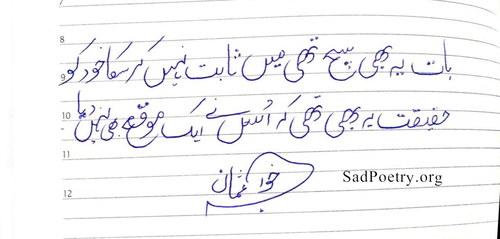 8
بات یہ بھی سچ تھی میں ثابت نہیں کر سکا خود کو
10
حقیقت یہ بھی تھی کہ اُس نے ایک موقع بھی نہیں دیا
11
SadPoetry.org
12